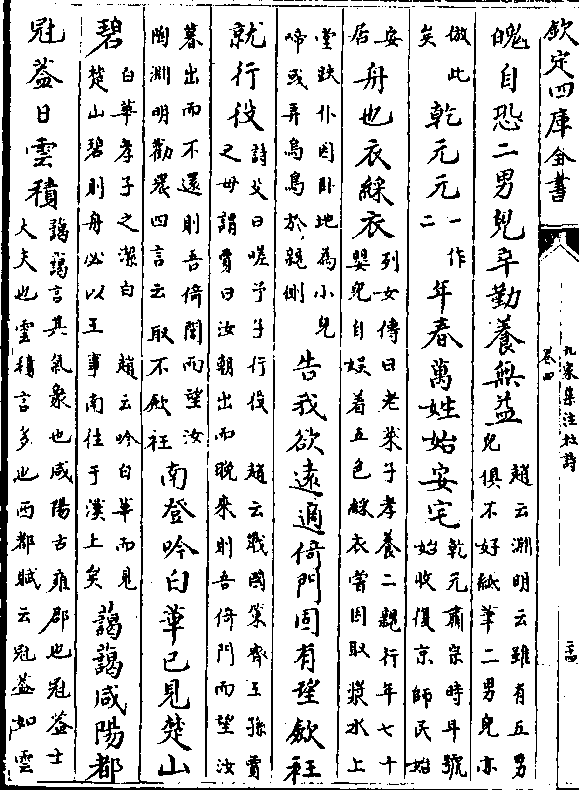 欽定四庫全書
九家集注杜詩
卷四
愧自恐二男兒辛勤養無益趙云淵明云雖有五男兒俱不好紙筆二男兒亦
倣此矣乾元元一作二年春萬姓始安宅乾元肅宗時年號始收復京師民始
安居舟也衣綵衣列女傳曰老萊子孝養二親行年七十嬰兒自娱着五色綵衣嘗因取漿水上
堂跌仆因卧地為小兒啼或弄烏鳥於親側告我欲遠適倚門固有望歛衽
就行役詩父曰嗟予子行役 趙云戰國策齊王孫賈之母謂賈曰汝朝出而晚來則吾倚門而望汝
暮出而不還則吾倚閭而望汝陶淵明勸農四言云敢不歛衽南登吟白華已見楚山
碧白華孝子之潔白 趙云吟白華而見楚山碧則舟必以王事南往于漢上矣藹藹咸陽都
冠葢日雲積藹藹言其氣象也咸陽古雍郡也冠葢士大夫也雲積言多也西都賦云冠葢如雲